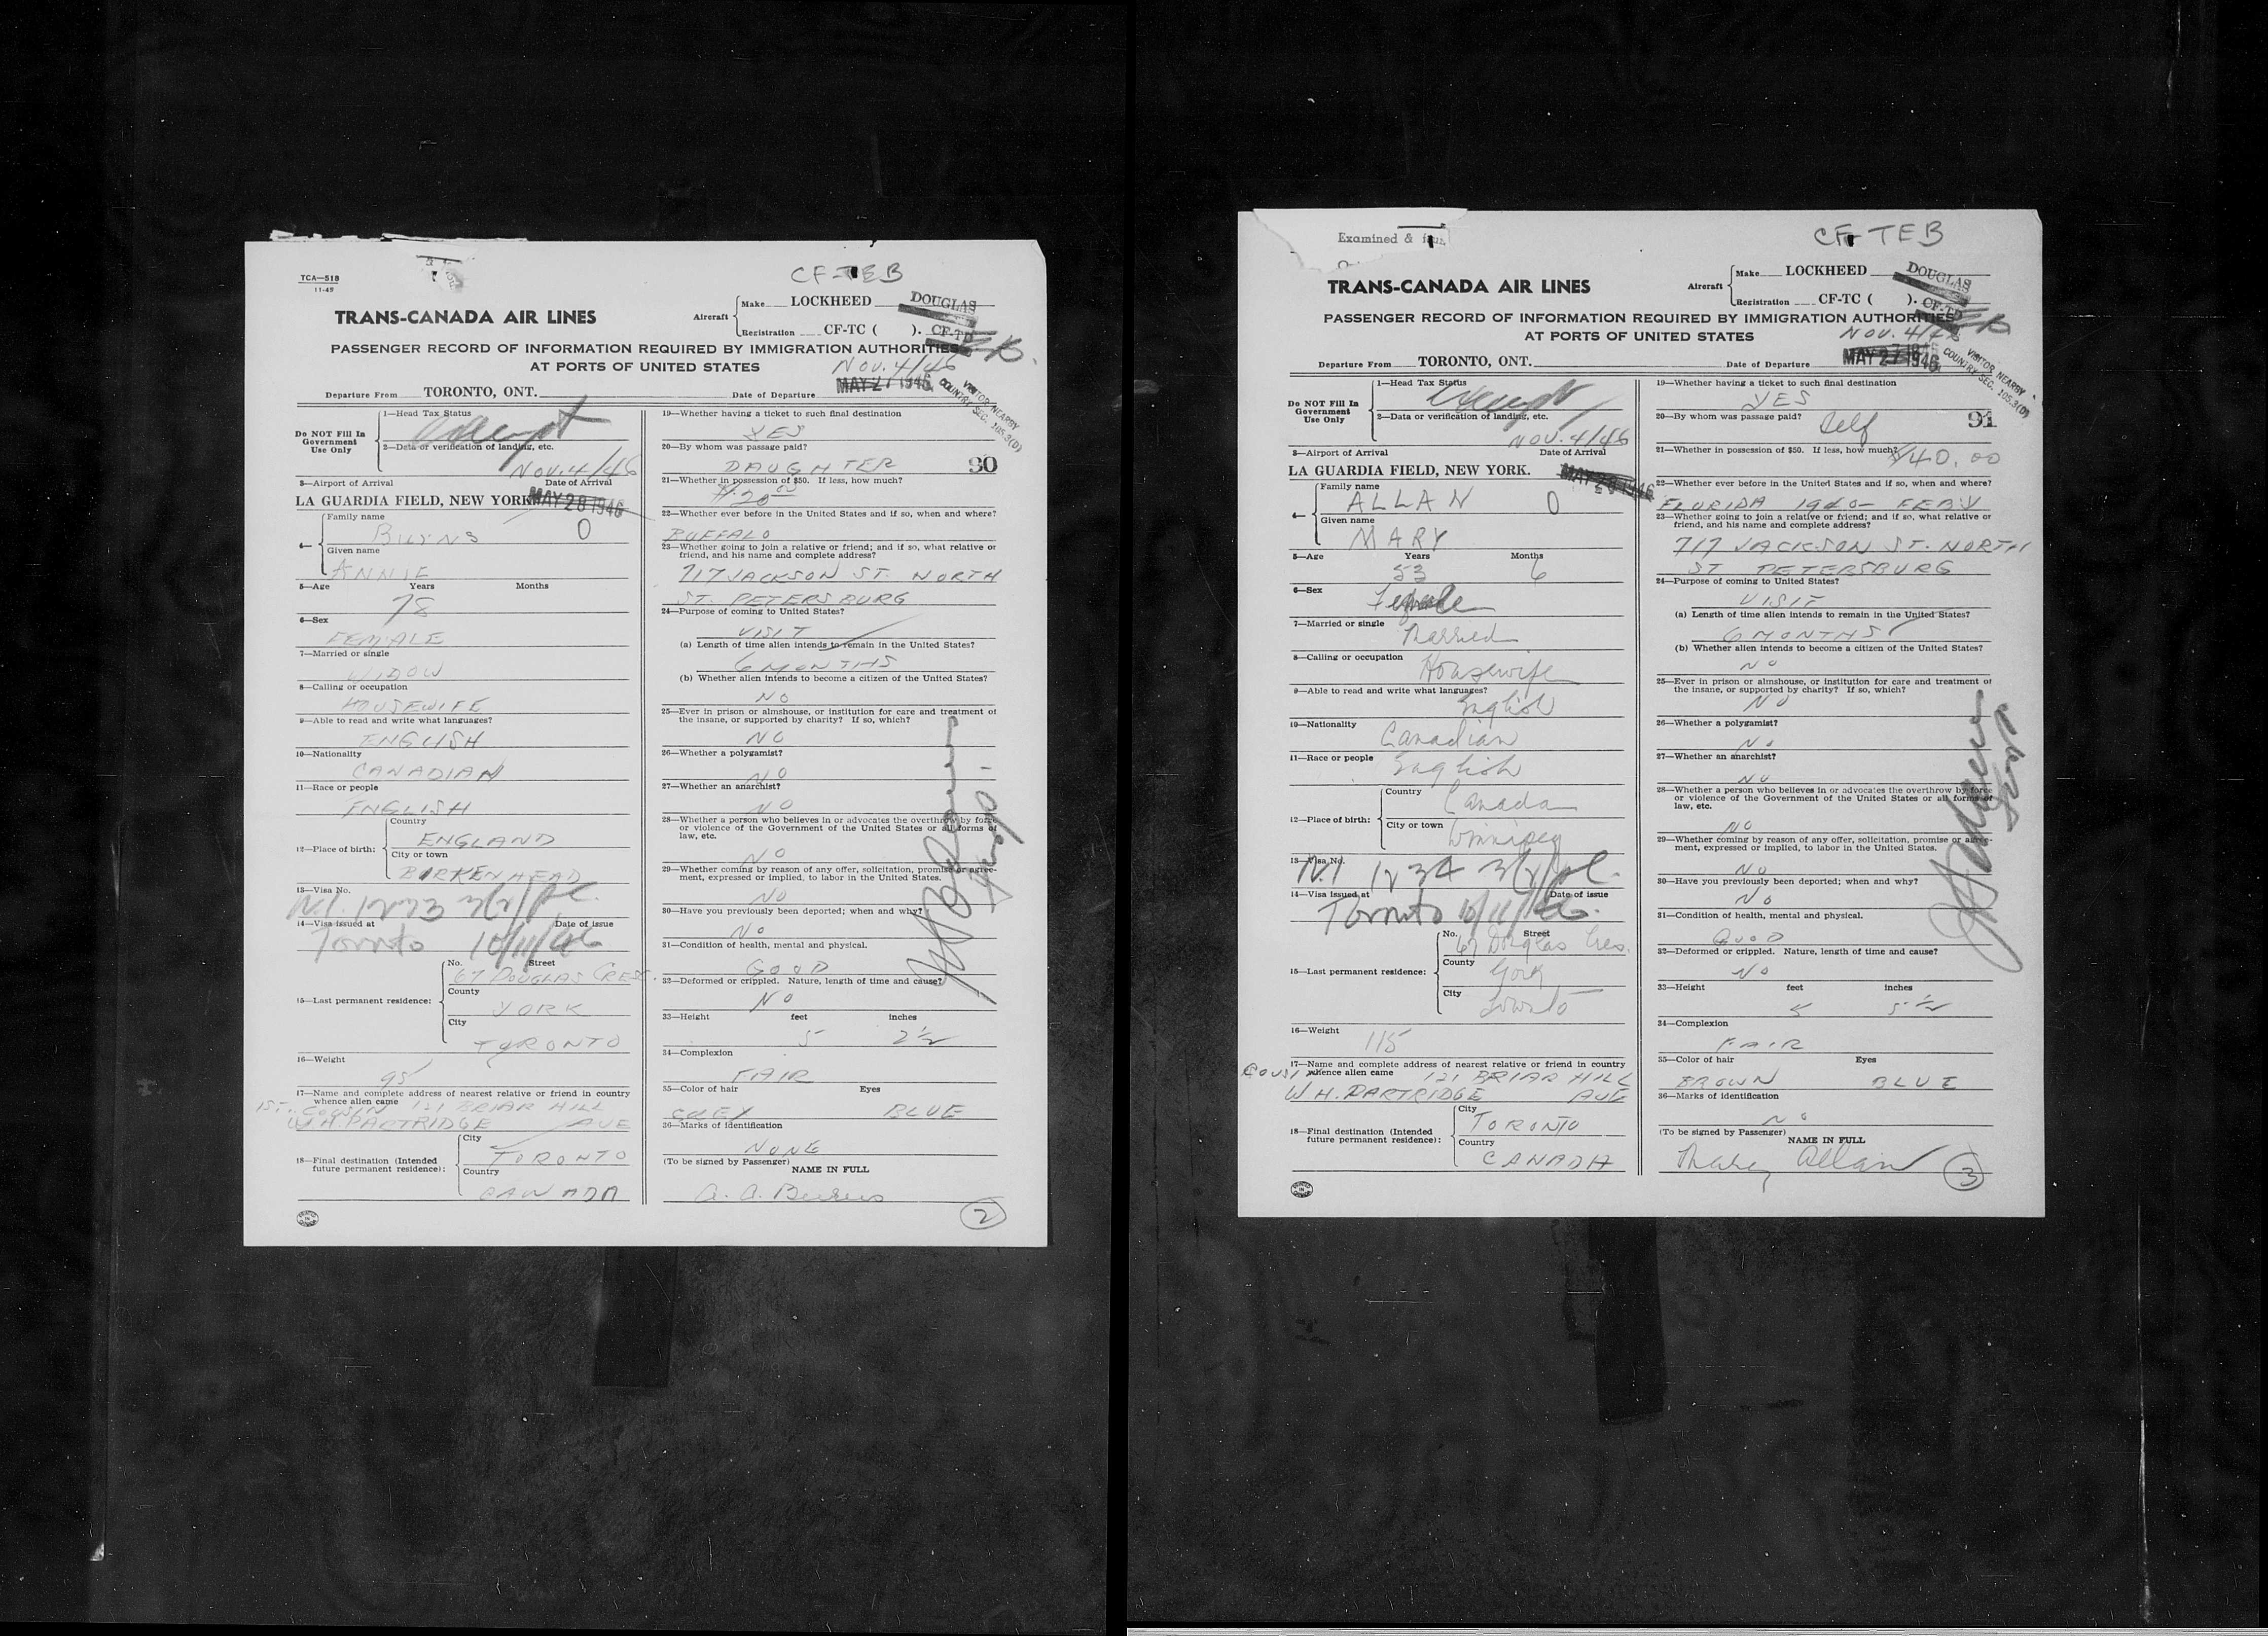 TCA—518
11-45
CF-TEB
TRANS-CANADA AIR LINES
Aircraft
Make LOCKHEED DOUGLAS
Registration CF-TC ( ). CF-TD
PASSENGER RECORD OF INFORMATION REQUIRED BY IMMIGRATION AUTHORITIES
AT PORTS OF UNITED STATES
NOV. 4/46
Departure From TORONTO, ONT. Date of Departure MAY 27 1946
VISITOR NEARBY
COUNTRY SEC. 105.3(D)
Do NOT Fill In
Government
Use Only
1—Head Tax Status
2—Data or verification of landing, etc.
NOV. 4/46
3—Airport of Arrival Date of Arrival
LA GUARDIA FIELD, NEW YORK MAY 28 1946
4—
Family name
BURNS 0
Given name
ANNIE
5—Age Years Months
78
6—Sex
FEMALE
7—Married or single
WIDOW
8—Calling or occupation
HOUSEWIFE
9—Able to read and write what languages?
ENGLISH
10—Nationality
CANADIAN
11—Race or people
ENGLISH
12—Place of birth:
Country
ENGLAND
City or town
BIRKENHEAD
13—Visa No.
14—Visa issued at Date of issue
Toronto 10/11/46
15—Last permanent residence:
No. Street
67 DOUGLAS CRES.
County
YORK
City
TORONTO
16—Weight
95
17—Name and complete address of nearest relative or friend in country
whence alien came
1ST. COUSIN 121 BRIAR HILL
W.H. PARTRIDGE AVE
18—Final destination (Intended
future permanent residence):
City
TORONTO
Country
CANADA
19—Whether having a ticket to such final destination
YES
20—By whom was passage paid?
DAUGHTER 90
21—Whether in possession of $50. If less, how much?
22—Whether ever before in the United States and if so, when and where?
BUFFALO
23—Whether going to join a relative or friend; and if so, what relative or
friend, and his name and complete address?
717 JACKSON ST. NORTH
ST. PETERSBURG
24—Purpose of coming to United States?
VISIT
(a) Length of time alien intends to remain in the United States?
6 MONTHS
(b) Whether alien intends to become a citizen of the United States?
NO
25—Ever in prison or almshouse, or institution for care and treatment of
the insane, or supported by charity? If so, which?
NO
26—Whether a polygamist?
NO
27—Whether an anarchist?
NO
28—Whether a person who believes in or advocates the overthrow by force
or violence of the Government of the United States or all forms of
law, etc.
NO
29—Whether coming by reason of any offer, solicitation, promise or agree-
ment, expressed or implied, to labor in the United States.
NO
30—Have you previously been deported; when and why?
NO
31—Condition of health, mental and physical.
GOOD
32—Deformed or crippled. Nature, length of time and cause?
NO
33—Height feet inches
5 2½
34—Complexion
FAIR
35—Color of hair Eyes
GREY BLUE
36—Marks of identification
NONE
(To be signed by Passenger)
NAME IN FULL
A. A. Burns
2
Examined &
CF-TEB
TRANS-CANADA AIR LINES
Aircraft
Make LOCKHEED DOUGLAS
Registration CF-TC ( ). CF-TD
PASSENGER RECORD OF INFORMATION REQUIRED BY IMMIGRATION AUTHORITIES
AT PORTS OF UNITED STATES
NOV. 4/46
Departure From TORONTO, ONT. Date of Departure MAY 27 1946
VISITOR NEARBY
COUNTRY SEC. 105.3(D)
Do NOT Fill In
Government
Use Only
1—Head Tax Status
2—Data or verification of landing, etc.
NOV. 4/46
3—Airport of Arrival Date of Arrival
LA GUARDIA FIELD, NEW YORK. MAY 28 1946
4—
Family name
ALLAN 0
Given name
MARY
5—Age Years Months
53 6
6—Sex
Female
7—Married or single
Married
8—Calling or occupation
Housewife
9—Able to read and write what languages?
English
10—Nationality
Canadian
11—Race or people
English
12—Place of birth:
Country
Canada
City or town
Winnipeg
13—Visa No.
14—Visa issued at Date of issue
Toronto 10/11/46.
15—Last permanent residence:
No. Street
67 Douglas Cres.
County
York
City
Toronto
16—Weight
115
17—Name and complete address of nearest relative or friend in country
whence alien came
COUSIN 121 BRIAR HILL
W H. PARTRIDGE AVE
18—Final destination (Intended
future permanent residence):
City
TORONTO
Country
CANADA
19—Whether having a ticket to such final destination
YES
20—By whom was passage paid?
Self 91
21—Whether in possession of $50. If less, how much?
$40.00
22—Whether ever before in the United States and if so, when and where?
FLORIDA 1940— FEBY
23—Whether going to join a relative or friend; and if so, what relative or
friend, and his name and complete address?
717 JACKSON ST. NORTH
ST PETERSBURG
24—Purpose of coming to United States?
VISIT
(a) Length of time alien intends to remain in the United States?
6 MONTHS
(b) Whether alien intends to become a citizen of the United States?
NO
25—Ever in prison or almshouse, or institution for care and treatment of
the insane, or supported by charity? If so, which?
NO
26—Whether a polygamist?
NO
27—Whether an anarchist?
NO
28—Whether a person who believes in or advocates the overthrow by force
or violence of the Government of the United States or all forms of
law, etc.
NO
29—Whether coming by reason of any offer, solicitation, promise or agree-
ment, expressed or implied, to labor in the United States.
NO
30—Have you previously been deported; when and why?
NO
31—Condition of health, mental and physical.
GOOD
32—Deformed or crippled. Nature, length of time and cause?
NO
33—Height feet inches
5 5½
34—Complexion
FAIR
35—Color of hair Eyes
BROWN BLUE
36—Marks of identification
NO
(To be signed by Passenger)
NAME IN FULL
Mary Allan
3